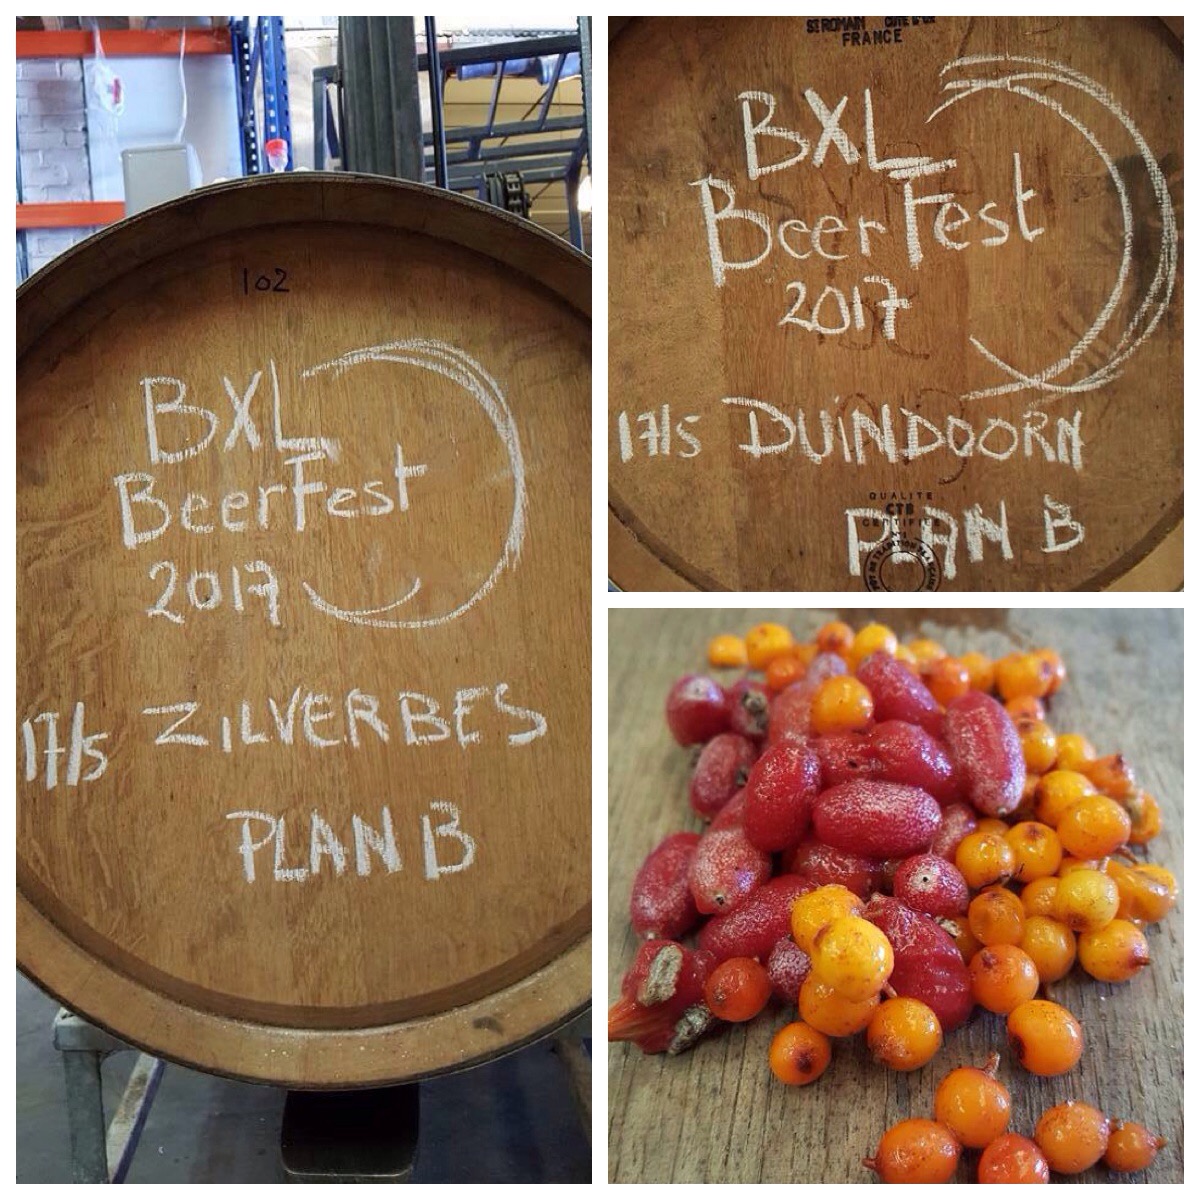 102
BXL
BeerFest
2017
17/5 ZILVERBES
PLAN B
ST ROMAIN CÔTE D'OR
FRANCE
BXL
BeerFest
2017
17/5 DUiNDOORN
QUALITE
CTB
CERTIFIEE
PLAN B